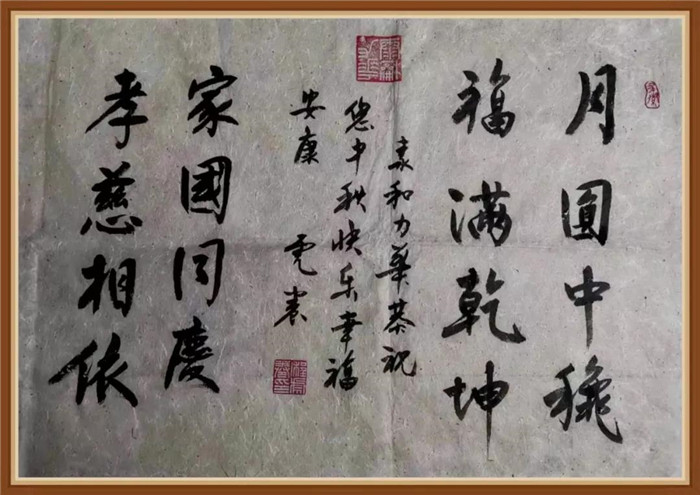 月圓中秋
福滿乾坤
和力華恭祝
您中秋快乐幸福
安康
家國同慶
孝慈相依